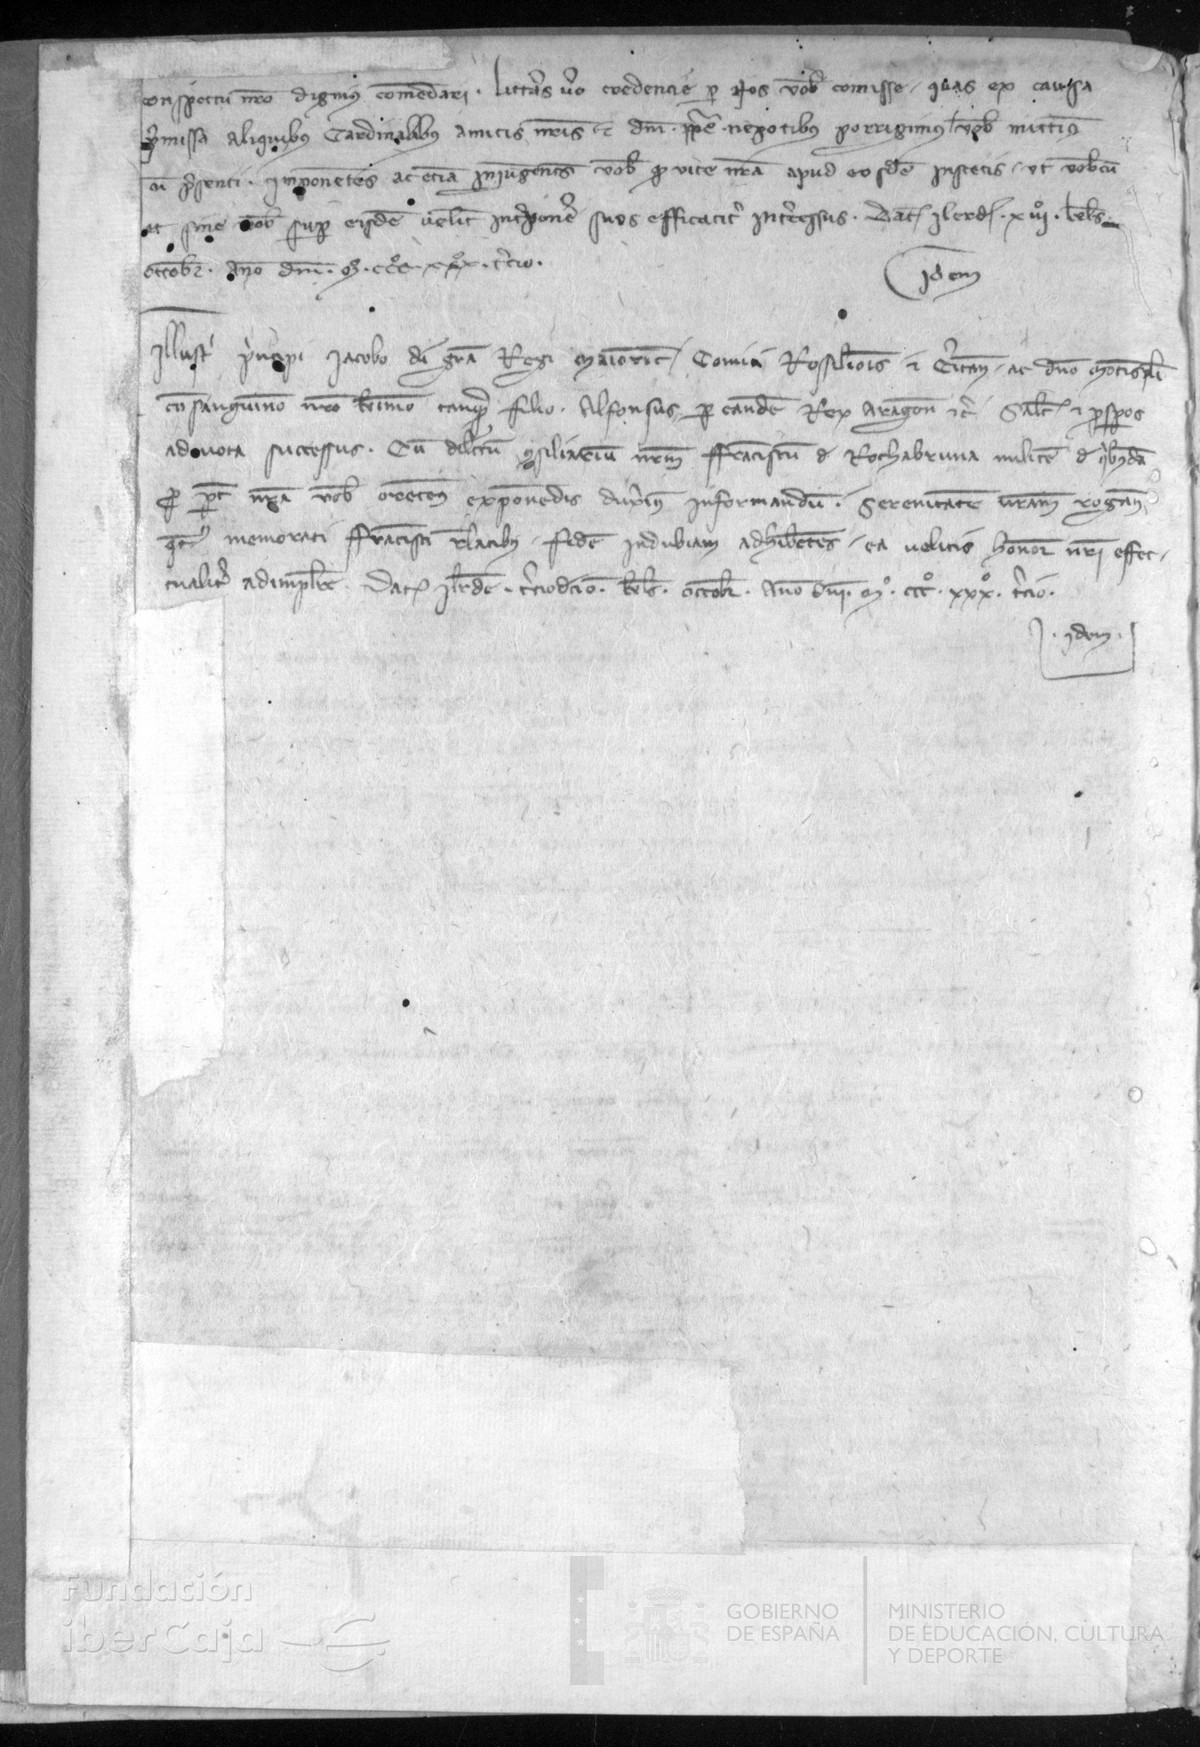 conspectu nr̄o dignius comendari. litt̄as v̄o credencie p̱ nos vob̄ comisse. quas ex causa
p̄missa aliquibus Cardinalibus amicis nr̄is ⁊ dn̄i pp̄e nepotibus porrigimus vob̄ mittim̄
cū p̄senti. Imponētes ac etiā Iniungentes vob̄ qd̄ vice nr̄a apud eosdē Instetis. ut vobcū
ac sine vob̄ sup̱ eisdē velīt int̄ponēr suos efficacit̄ int̄cessus. Dat̄ Ilerd̄. xviij. kl̄s.
octobr̄. Año dn̄i. M. ccc̊. xxx̊. t̄cio.
Idem
Illustr̄ p̄ncipi Jacobo di gr̄a Regi Maioric̄. Comiti Rossilioīs ⁊ C̄itan̄. ac dn̄o Montispl̄i
consanguineo nr̄o kmo tanq̄ filio. Alfonsus p̱ eandē Rex Aragon̄ ⁊c̄. Sal̄t ⁊ p̱spos
ad vota successus. Cū dilectū consiliariū nr̄m ffranciscū d̄ Rochabruna militē d̄ q̄busdā
ex p̱te nr̄a vob̄ oretenus exponēdis dux̄im̄ informandū. Serenitatē vr̄am rogam̄
q̄t̄ memorati ffrancisci r̄latibus fidē indubiam adhibētes. ea velitis honor̄ nr̄i effec
tualit̄ adimpler̄e. Dat̄ Ilerdē. t̄ciodcio. kl̄s. octobr̄. Año dn̄i. M̊. ccc̊. xxx̊. t̄cio.
. Idem .
Fundación
iberCaja
GOBIERNO
DE ESPAÑA
MINISTERIO
DE EDUCACIÓN, CULTURA
Y DEPORTE